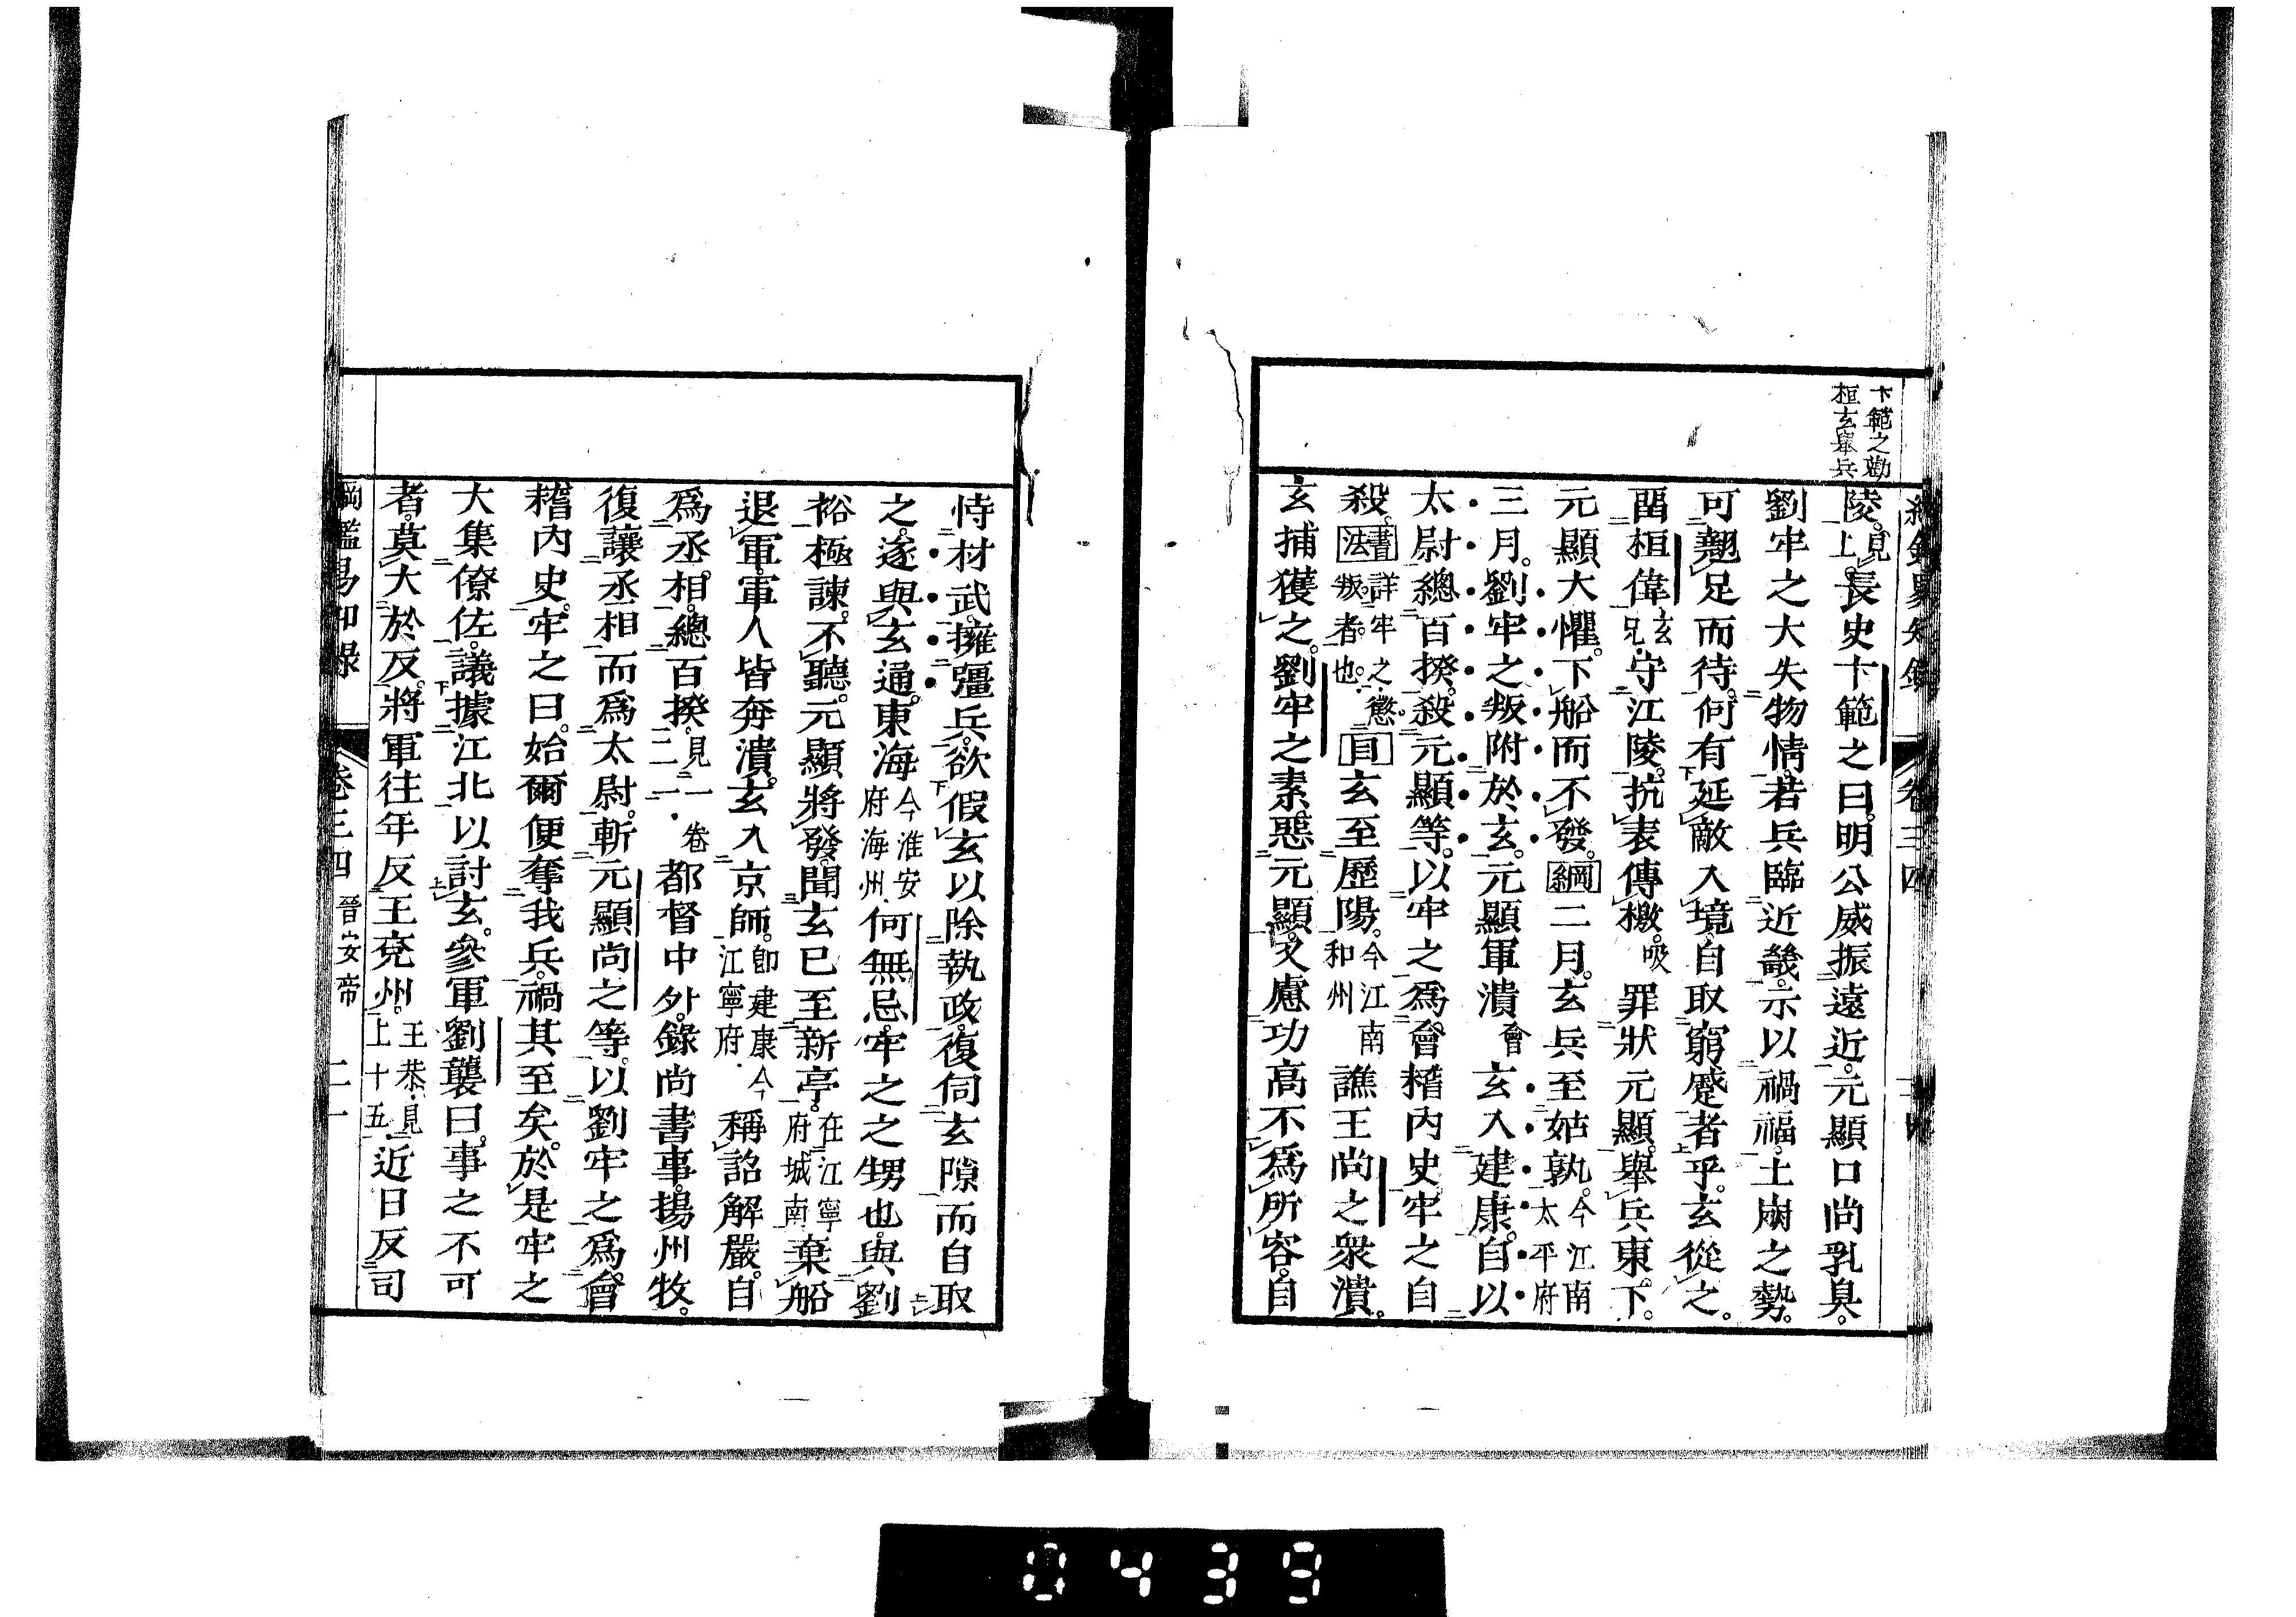 卞範之勸
桓玄舉兵
陵。見上。長史卞範之曰。明公威振遠近。元顯口尚乳臭。
劉牢之大失物情。若兵臨近畿。示以禍福。土崩之勢。
可翹足而待。何有延敵入境。自取窮蹙者乎。玄從之。
留桓偉玄兄。守江陵。抗表傳檄。吸罪狀元顯。舉兵東下。
元顯大懼。下船而不發。綱二月。玄兵至姑孰。今江南太平府
三月。劉牢之叛附於玄。元顯軍潰會玄入建康。自以
太尉總百揆。殺元顯等。以牢之爲會稽內史。牢之自
殺。書法詳牢之。懲叛者也。目玄至歷陽。今江南和州譙王尚之衆潰。
玄捕獲之。劉牢之素惡元顯。又慮功高不爲所容。自
恃材武。擁彊兵。欲假玄以除執政。復伺玄隙而自取
之。遂與玄通。東海今淮安府海州何無忌。牢之之甥也。與劉
裕極諫。不聽。元顯將發。聞玄已至新亭。在江寧府城南棄船
退軍。軍人皆奔潰。玄入京師。卽建康今江寧府稱詔解嚴。自
爲丞相。總百揆。見一卷二一都督中外。錄尚書事。揚州牧。
復讓丞相而爲太尉。斬元顯尚之等。以劉牢之爲會
稽內史。牢之曰。始爾便奪我兵。禍其至矣。於是牢之
大集僚佐。議據江北以討玄。參軍劉襲曰。事之不可
者。莫大於反。將軍往年反王兗州。王恭見上十五近日反司
綱鑑易知錄 卷三四 晉安帝 二一
0439